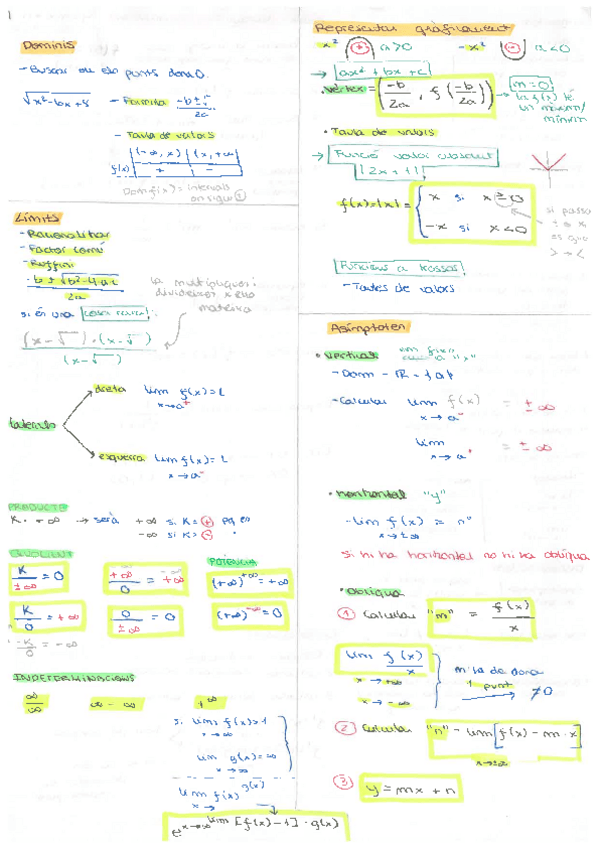 1
Dominis
- Buscar on els punts dona 0.
√x²-6x+8 - Formula -b±√ / 2a
- Taula de valors
(-∞, x) | (x, +∞)
f(x) | + | -
Dom f(x) = intervals
on sigui +
Límits
- Racionalitzar
- Factor comú
- Ruffini
-b ± √b²-4ac / 2a
si és una
(x-√ ) · (x-√ )
(x-√ )
la multipliques i
divideixes x ella
mateixa
laterals
dreta lim f(x) = L
x→a⁺
esquerra lim f(x) = L
x→a⁻
PRODUCTE
K · +∞ → serà +∞ si K = +
-∞ si K = -
QUOCIENT
K/±∞ = 0
+∞/0 = +∞
K/0 = +∞
0/±∞ = 0
-K/0 = -∞
POTÈNCIA
(+∞)^+∞ = +∞
(+∞)^-∞ = 0
INDETERMINACIONS
∞/∞
∞ - ∞
1^∞
si lim f(x) = 1
x→∞
lim g(x) = ∞
x→∞
lim f(x)^g(x)
x→
e^ lim [f(x)-1] · g(x)
x→∞
Representar gràficament
x² + a>0 -x² - a<0
→ ax² + bx + c
· Vèrtex = (-b/2a , f(-b/2a)) → m = 0
la f(x) té
un màxim/
mínim
· Taula de valors
→ Funció valor absolut
|2x+1|
f(x)=|x| = { x si x ≥ 0
-x si x < 0
si passa
Funcions a trossos
- Taules de valors
Asímptotes
· Vertical "x"
- Dom - ℝ - {a}
- Calcular lim f(x) = ±∞
x→a⁻
lim = ±∞
x→a⁺
· Horitzontal "y"
- lim f(x) = nº
x→±∞
Si hi ha horitzontal no hi ha obliqua
· Obliqua
1 Calcular "m" = f(x)/x
lim f(x)/x
x→+∞
x→-∞
m'ha de donar
1 punt
≠0
2 Calcular "n" = lim [f(x) - m · x]
x→±∞
3 y = mx + n